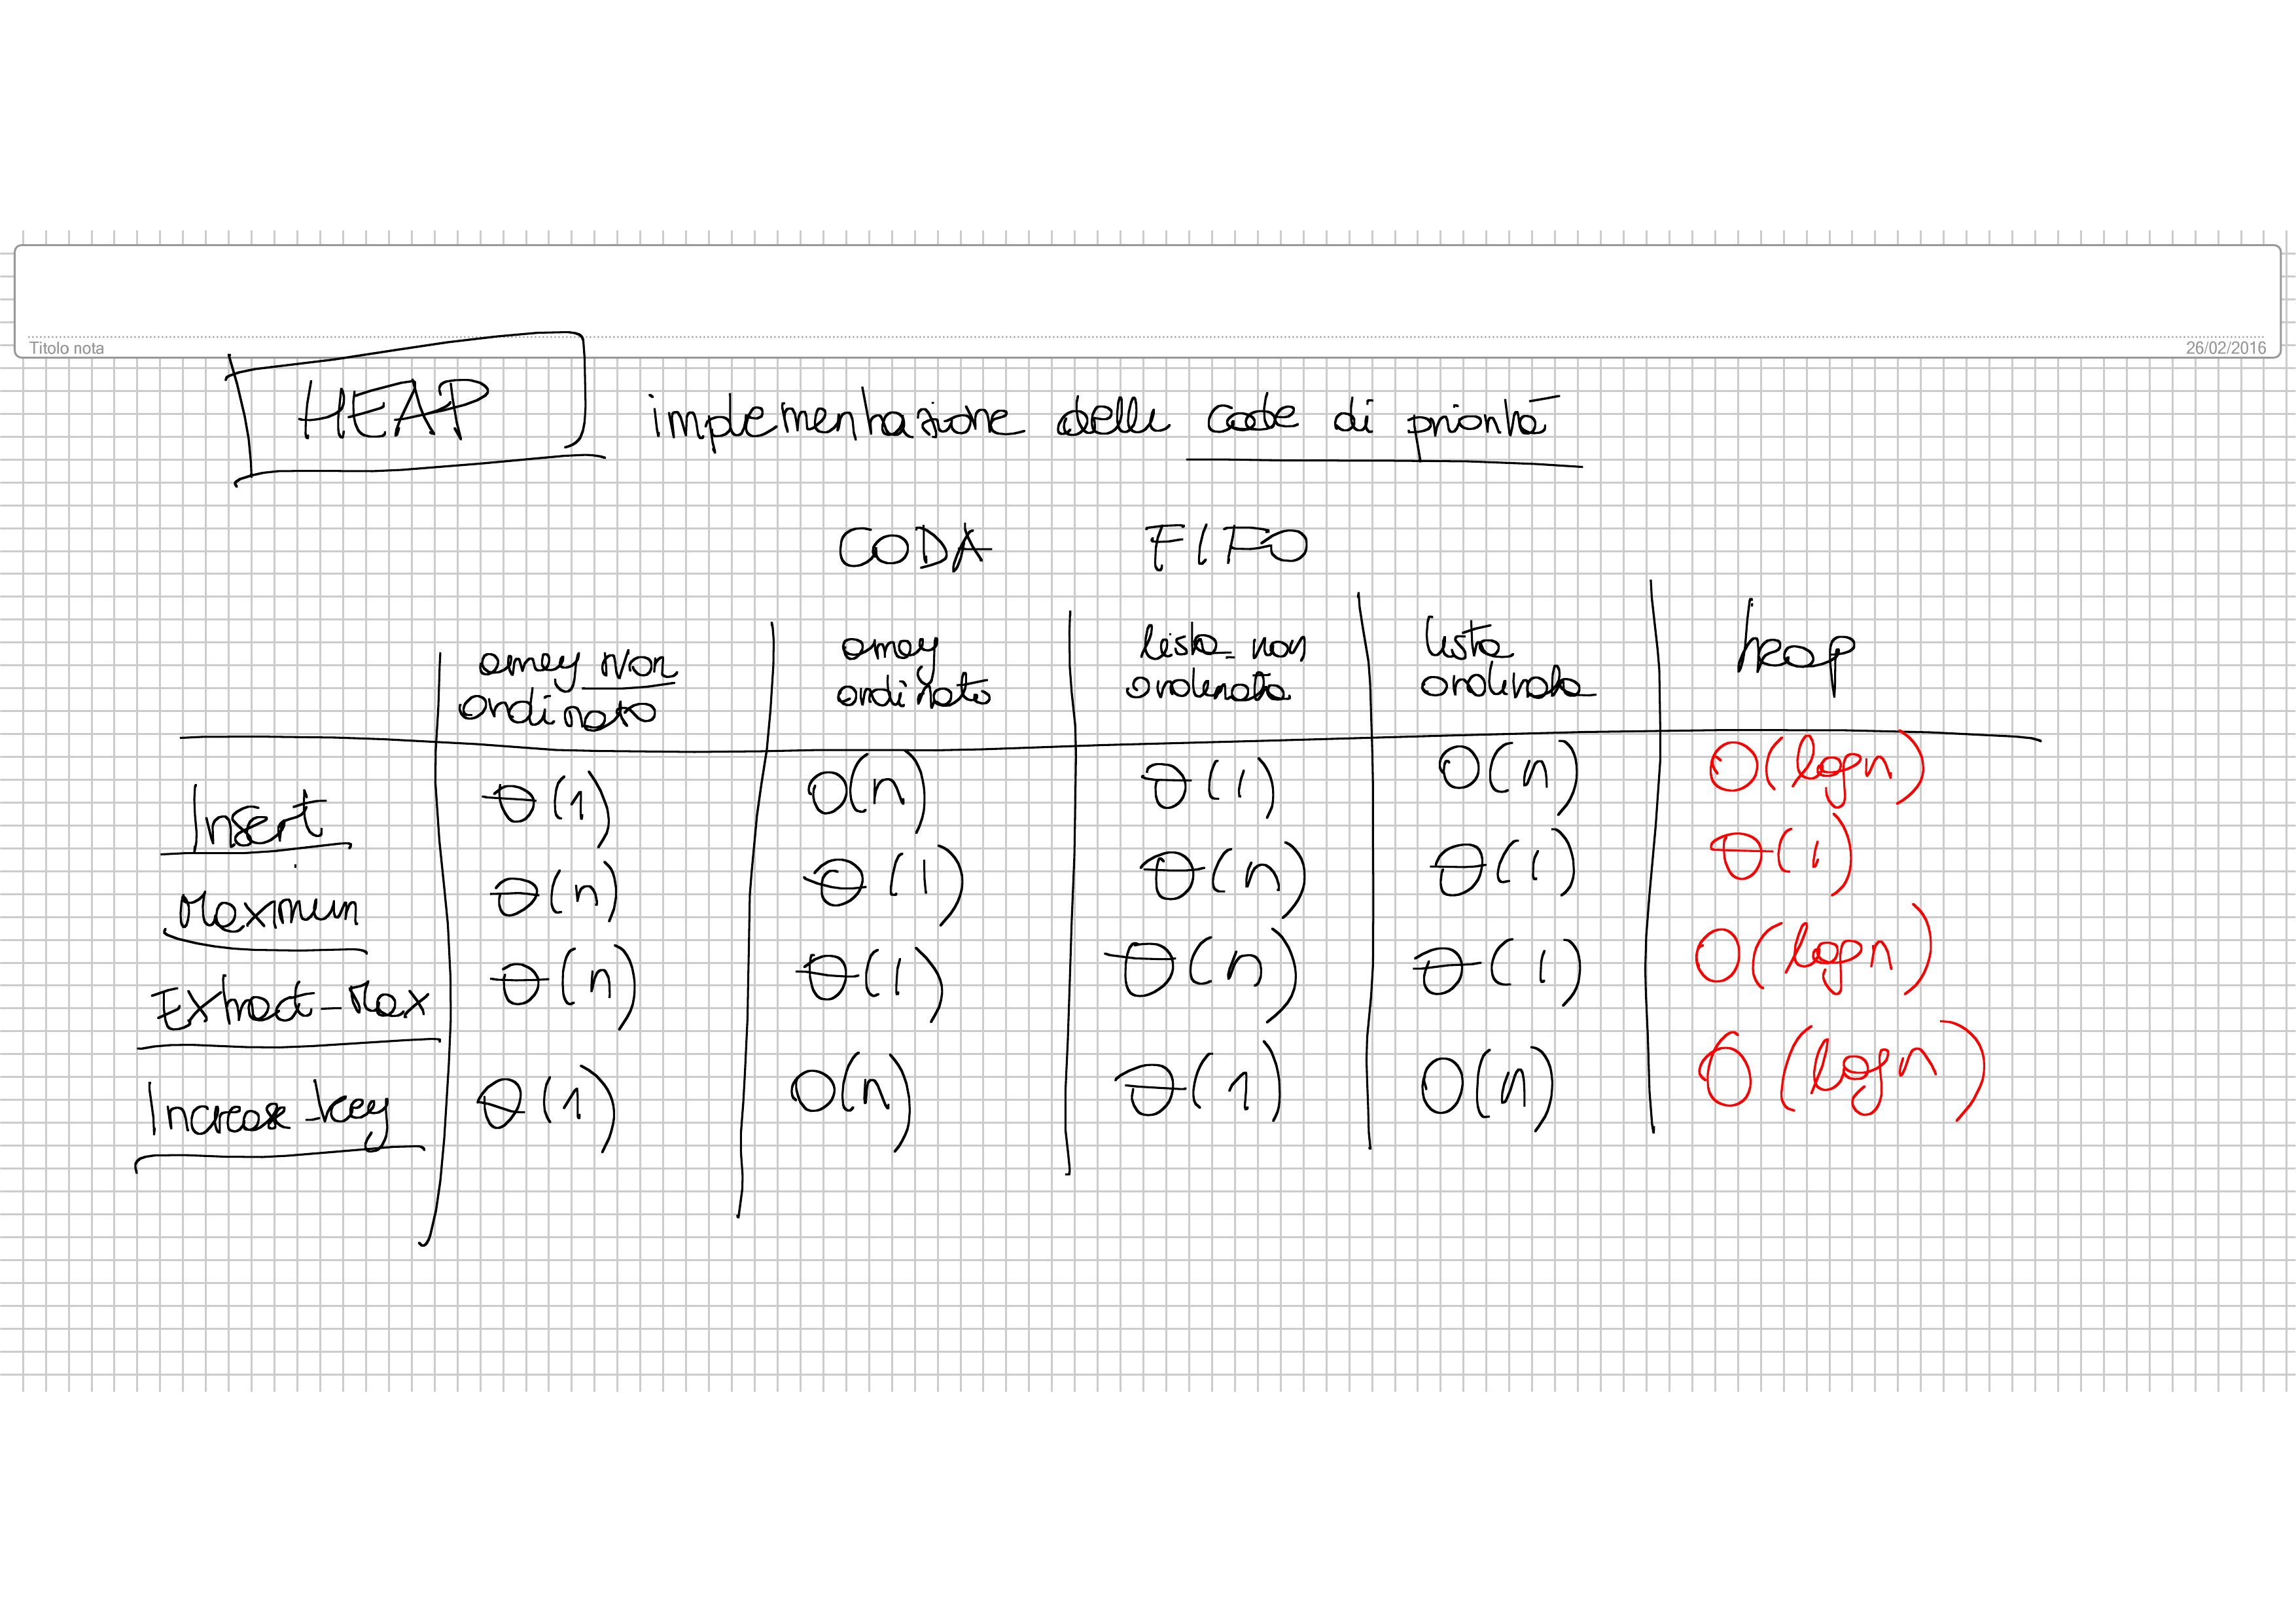 Titolo nota
26/02/2016
HEAP implementazione delle code di priorità
CODA FIFO
array non ordinato | array ordinato | lista non ordinata | lista ordinata | heap
Insert Θ(1) O(n) Θ(1) O(n) O(logn)
Maximum Θ(n) Θ(1) Θ(n) Θ(1) Θ(1)
Extract-Max Θ(n) Θ(1) Θ(n) Θ(1) O(logn)
Increase-key Θ(1) O(n) Θ(1) O(n) O(logn)